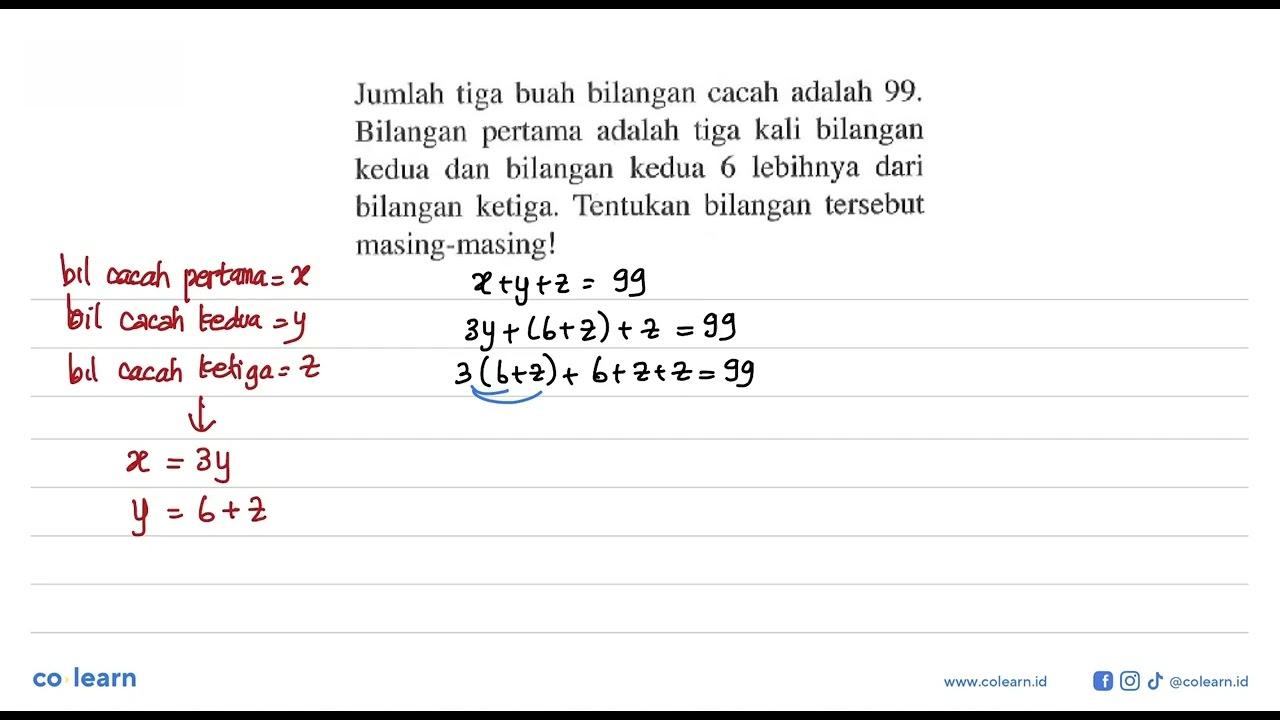 Jumlah tiga buah bilangan cacah adalah 99.
Bilangan pertama adalah tiga kali bilangan
kedua dan bilangan kedua 6 lebihnya dari
bilangan ketiga. Tentukan bilangan tersebut
masing-masing!
bil cacah pertama = x
bil cacah kedua = y
bil cacah ketiga = z
↓
x = 3y
y = 6 + z
x + y + z = 99
3y + (6 + z) + z = 99
3(6 + z) + 6 + z + z = 99
co learn
www.colearn.id
@colearn.id